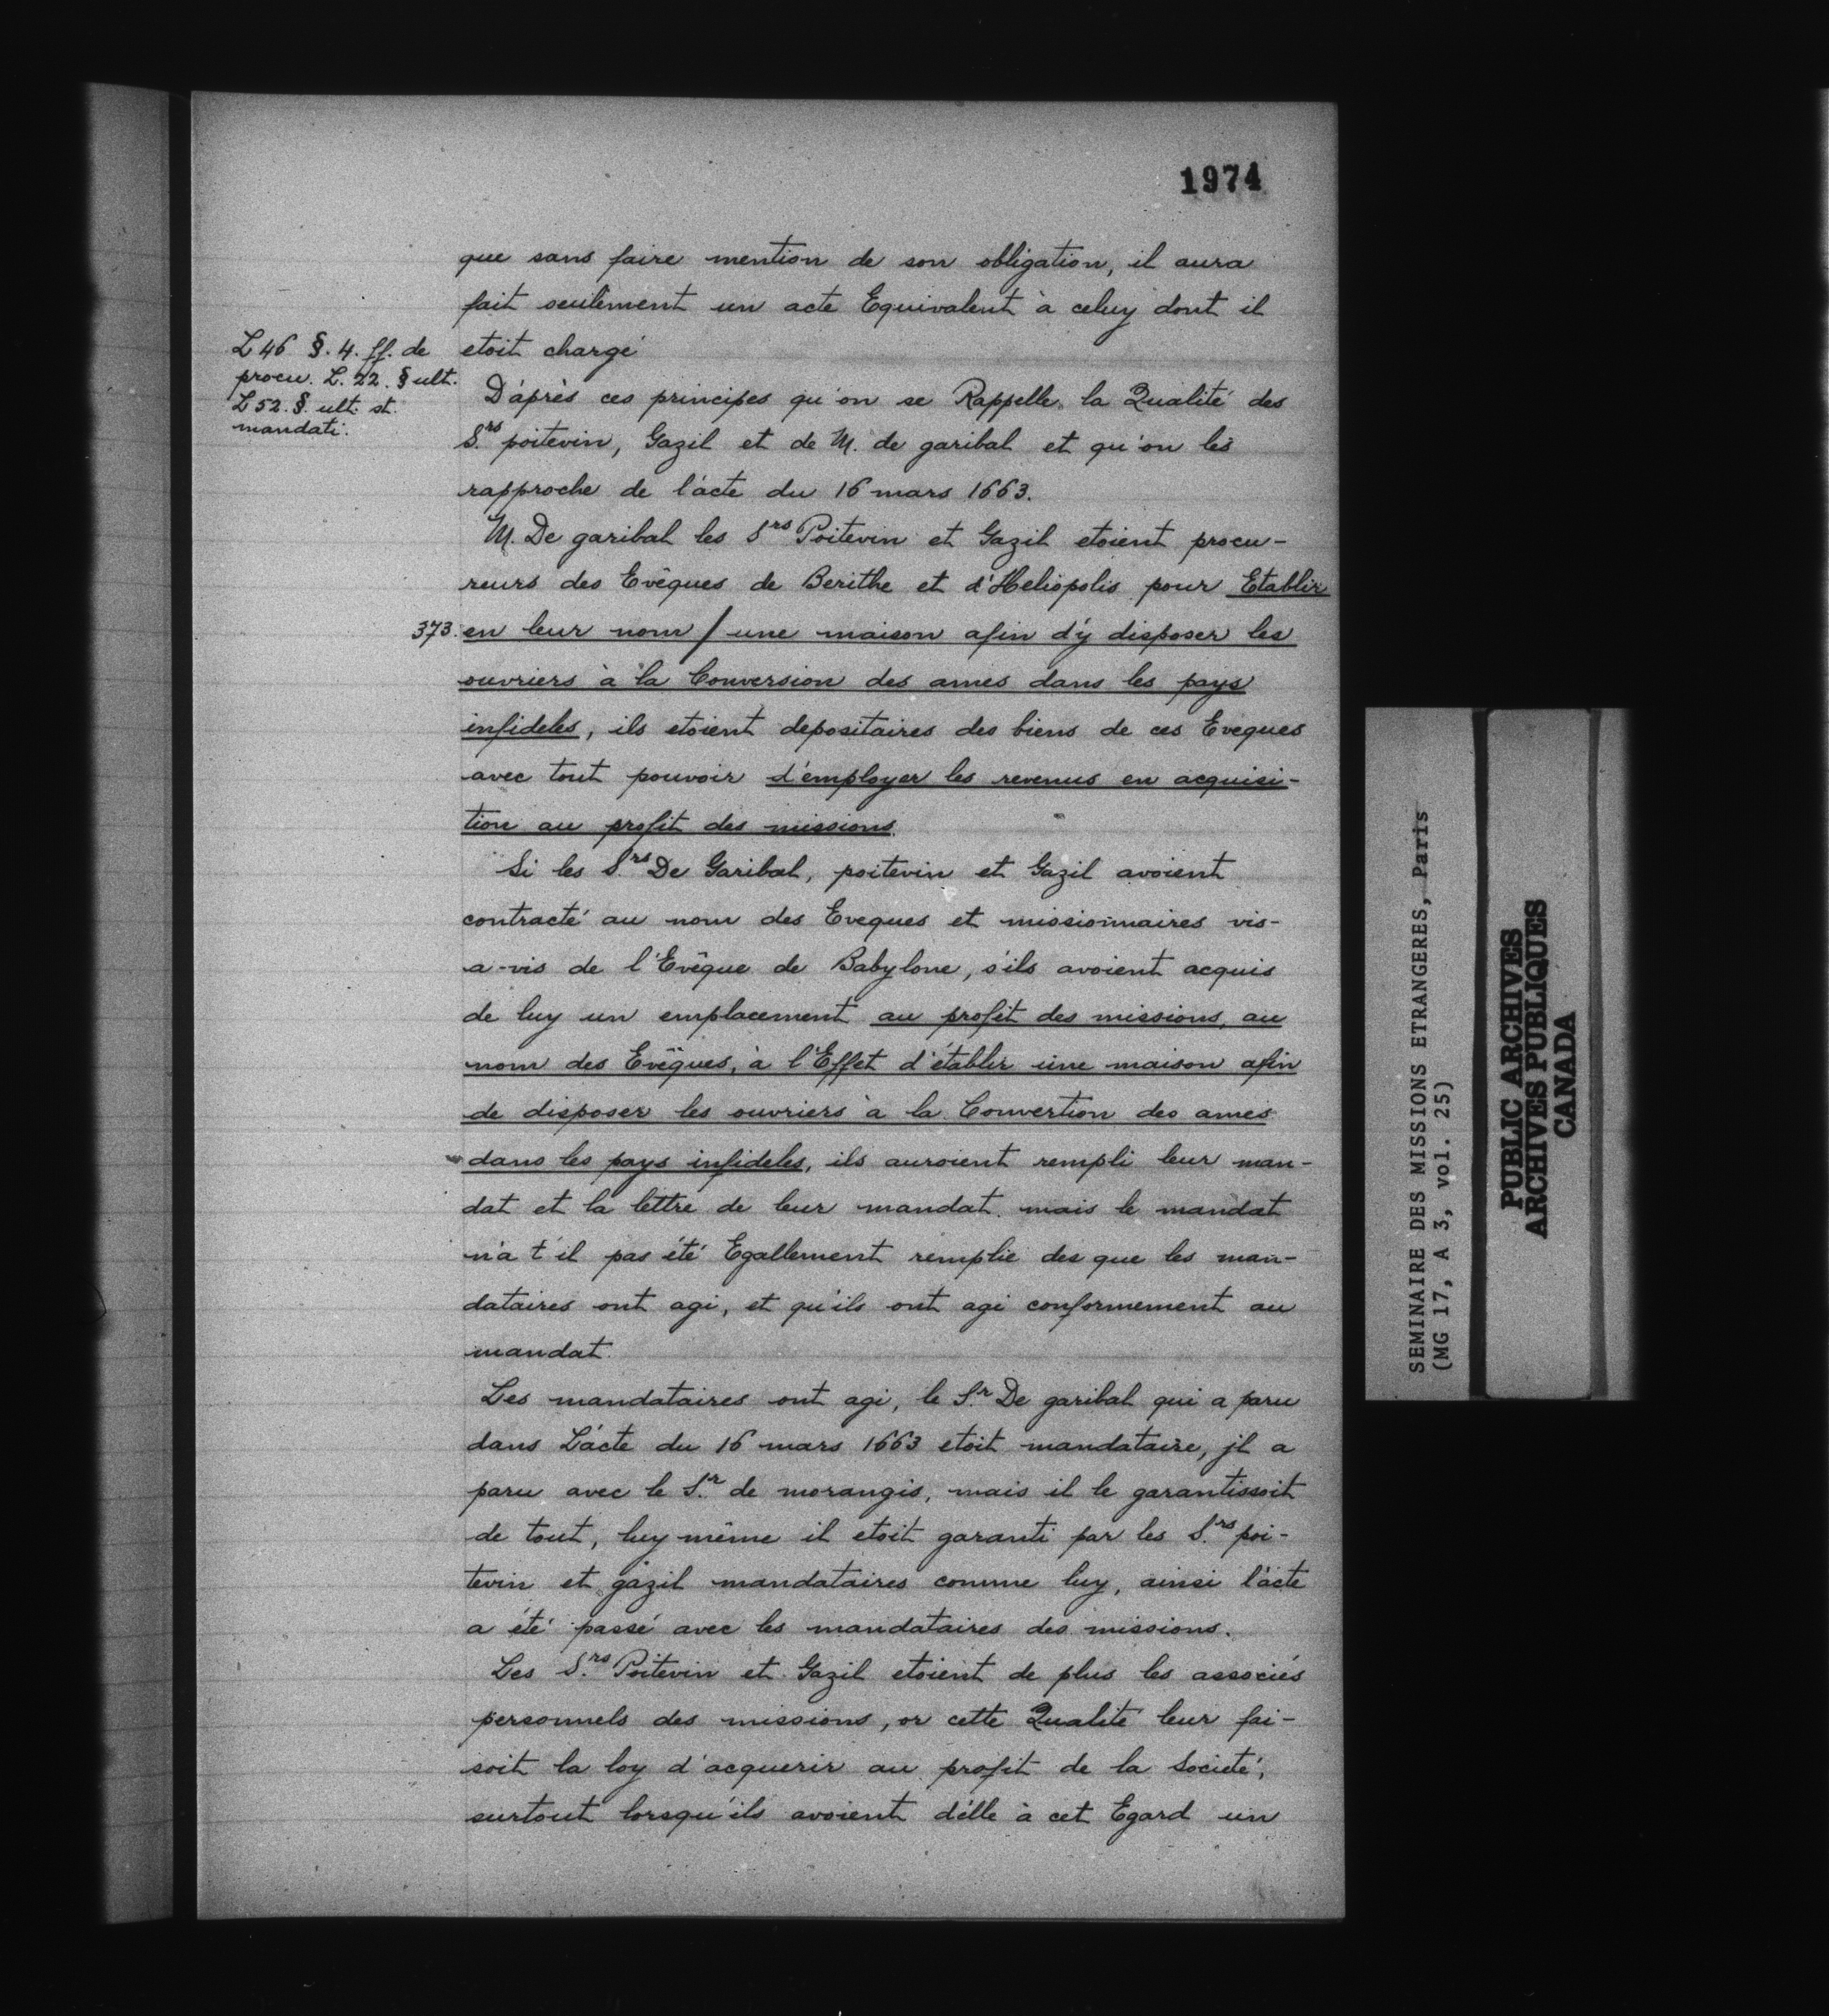 1974
que sans faire mention de son obligation, il aura
fait seulement un acte Equivalent à celuy dont il
etoit chargé
L 46 §. 4. ff. de
procu. L. 22. § ult.
L 52. §. ult. st.
mandati.
D'après ces principes qu'on se Rappelle la Qualité des
S.rs poitevin, Gazil et de M. de garibal et qu'on les
rapproche de l'acte du 16 mars 1663.
M. De garibal les Srs Poitevin et Gazil etoient procu-
reurs des Evêques de Berithe et d'Heliopolis pour Etablir
373. en leur nom / une maison afin d'y disposer les
ouvriers à la Conversion des ames dans les pays
infideles, ils etoient depositaires des biens de ces Eveques
avec tout pouvoir d'employer les revenus en acquisi-
tion au profit des missions.
Si les S.rs De Garibal, poitevin et Gazil avoient
contracté au nom des Eveques et missionnaires vis-
a-vis de l'Evêque de Babylone, s'ils avoient acquis
de luy un emplacement au profit des missions, au
nom des Evêques, à l'Effet d'établir une maison afin
de disposer les ouvriers à la Convertion des ames
dans les pays infideles, ils auroient rempli leur man-
dat et la lettre de leur mandat. mais le mandat
n'a t'il pas été Egallement remplie des que les man-
dataires ont agi, et qu'ils ont agi conformement au
mandat.
Les mandataires ont agi, le S.r De garibal qui a paru
dans L'acte du 16 mars 1663 etoit mandataire, jl a
paru avec le S.r de morangis, mais il le garantissoit
de tout, luy même il etoit garanti par les S.rs poi-
tevin et gazil mandataires comme luy, ainsi l'acte
a été passé avec les mandataires des missions.
Les S.rs Poitevin et Gazil etoient de plus les associés
personnels des missions, or cette Qualité leur fai-
soit la loy d'acquerir au profit de la Societé,
surtout lorsqu'ils avoient d'elle à cet Egard un
SEMINAIRE DES MISSIONS ETRANGERES, Paris
(MG 17, A 3, vol. 25)
PUBLIC ARCHIVES
ARCHIVES PUBLIQUES
CANADA